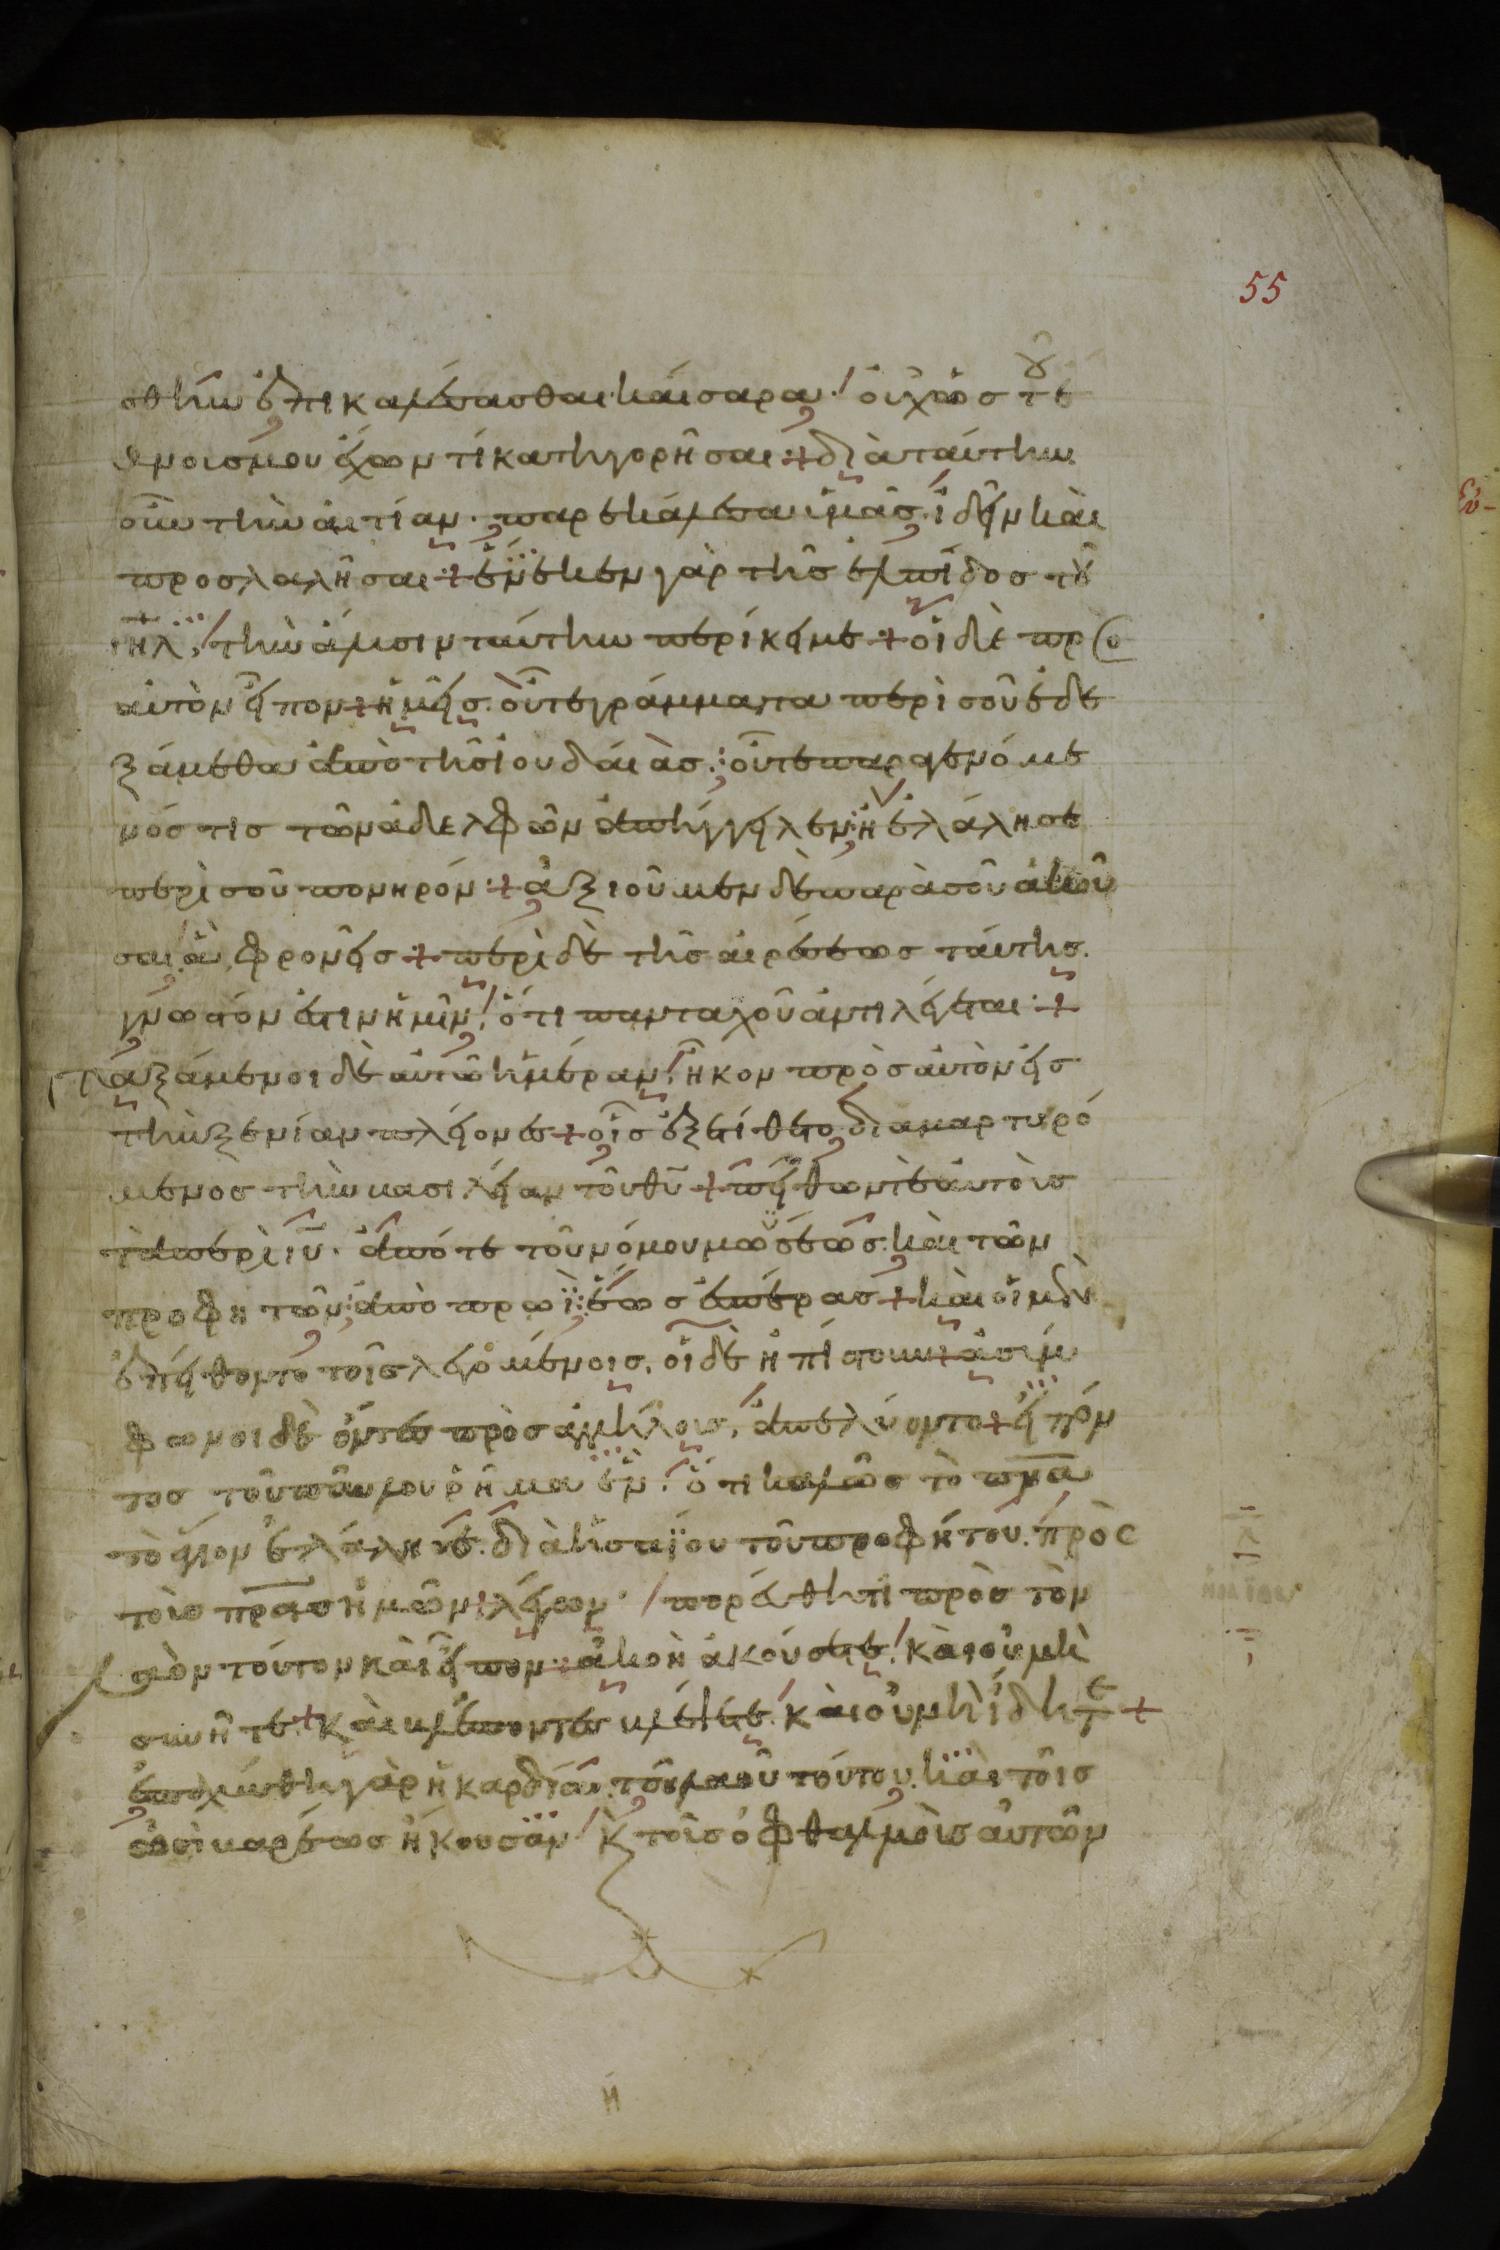 55
σθην ἐπικαλέσασθαι καίσαρα· οὐχ ὡσ τοῦ ἔ
θνουσ μου ἔχων τί κατηγορῆσαι + διὰ ταύτην
οὖν τὴν αἰτίαν· παρεκάλεσα ὑμᾶσ ἰδεῖν καὶ
προσλαλῆσαι + ἕνεκεν γὰρ τῆσ ἐλπίδοσ τοῦ
ιηλ, τὴν ἅλυσιν ταύτην περίκειμε + οἱ δὲ προ
αὐτὸν εἶπον + ἡμεῖσ οὔτε γράμματα περὶ σοῦ ἐδε
ξάμεθα ἀπὸ τῆσ ἰουδαίασ· οὔτε παραγενόμε
νόσ τισ τῶν ἀδελφῶν ἀπήγγειλεν· ἢ ἐλάλησε
περὶ σοῦ πονηρόν + ἀξιοῦμεν δὲ παρὰ σοῦ ἀκοῦ
σαι ἃ φρονεῖσ + περὶ δὲ τῆσ αἱρέσεωσ ταύτησ.
γνωστόν ἐστιν ἡμῖν, ὅτι πανταχοῦ ἀντιλέγεται +
ταξάμενοι δὲ αὐτῶ ἡμέραν, ἧκον πρὸσ αὐτὸν εἰσ
τὴν ξενίαν πλείονεσ + οἷσ ἐξετίθετο διαμαρτυρό
μενοσ τὴν βασιλείαν τοῦ θυ + πείθων τὲ αὐτοὺσ
τὰ περὶ ιυ· ἀπό τε τοῦ νόμου μωϋσέωσ. καὶ τῶν
προφητῶν· ἀπὸ πρωῒ· ἕωσ ἑσπέρασ + καὶ οἱ μὲν
ἐπείθοντο τοῖσ λεγομένοισ, οἱ δὲ ἠπίστουν + ἀσύμ
φωνοι δὲ ὄντεσ πρὸσ ἀλλήλουσ, ἀπελύοντο + εἰπόν
τοσ τοῦ παύλου ῥῆμα ἕν· ὅτι καλῶσ τὸ πνα
τὸ ἅγιον ἐλάλησε. διὰ ἡσαΐου τοῦ προφήτου. πρὸσ
τοὺσ πρασ ἡμῶν λέγων· πορεύθητι πρὸσ τὸν
λαὸν τοῦτον καὶ εἶπον + ἀκοὴ ἀκούσετε, καὶ οὐ μὴ
συνῆτε + καὶ βλέποντεσ βλέψετε, καὶ οὐ μὴ ἴδητε +
ἐπαχύνθη γὰρ ἡ καρδία τοῦ λαοῦ τούτου. καὶ τοῖσ
ὠσὶ βαρέωσ ἤκουσαν κ τοῖσ ὀφθαλμοῖσ αὐτῶν